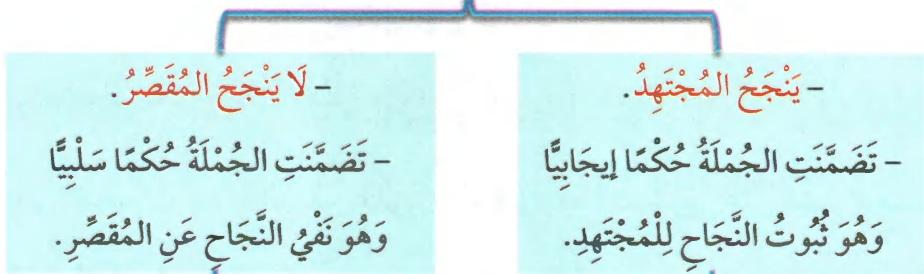 – يَنْجَحُ المُجْتَهِدُ.
– تَضَمَّنَتِ الجُمْلَةُ حُكْمًا إِيجَابِيًّا
وَهُوَ ثُبُوتُ النَّجَاحِ لِلْمُجْتَهِدِ.
– لَا يَنْجَحُ المُقَصِّرُ.
– تَضَمَّنَتِ الجُمْلَةُ حُكْمًا سَلْبِيًّا
وَهُوَ نَفْيُ النَّجَاحِ عَنِ المُقَصِّرِ.